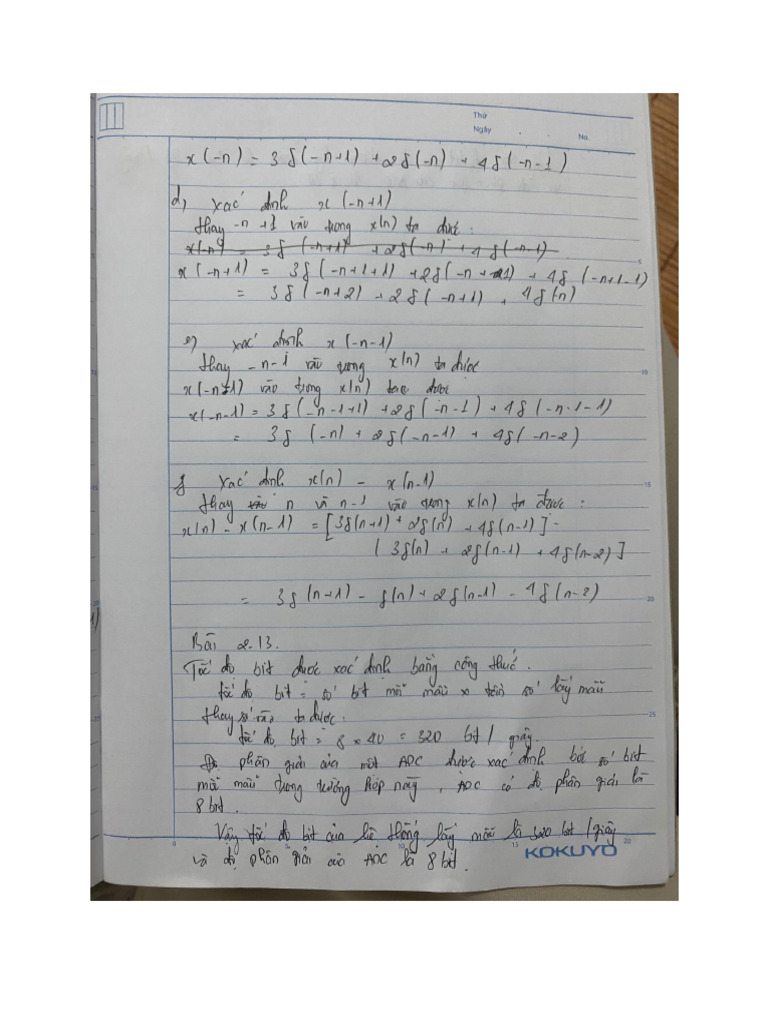 Thứ
Ngày . . No.
x(-n) = 3δ(-n+1) + 2δ(-n) + 4δ(-n-1)
d, Xác định x(-n+1)
Thay -n+1 vào trong x(n) ta được:
x(-n) = 3δ(-n+1) + 2δ(-n) + 4δ(-n-1)
x(-n+1) = 3δ(-n+1+1) + 2δ(-n+1) + 4δ(-n+1-1)
= 3δ(-n+2) + 2δ(-n+1) , 4δ(n)
e, xác định x(-n-1)
Thay -n-1 vào trong x(n) ta được
x(-n-1) vào trong x(n) ta được
x(-n-1) = 3δ(-n-1+1) + 2δ(-n-1) + 4δ(-n-1-1)
= 3δ(-n) + 2δ(-n-1) + 4δ(-n-2)
f Xác định x(n) - x(n-1)
Thay n và n-1 vào trong x(n) ta được:
x(n) - x(n-1) = [3δ(n+1) + 2δ(n) + 4δ(n-1)] -
[3δ(n) + 2δ(n-1) + 4δ(n-2)]
= 3δ(n+1) - δ(n) + 2δ(n-1) - 4δ(n-2)
Bài 2.13.
Tốc độ bit được xác định bằng công thức.
tốc độ bit = số bit mỗi mẫu x tần số lấy mẫu
thay số vào ta được:
tốc độ bit = 8 x 40 = 320 bit / giây.
phân giải của một ADC được xác định bởi số bit
mỗi mẫu trong trường hợp này, ADC có độ phân giải là
8 bit.
Vậy tốc độ bit của hệ thống lấy mẫu là 320 bit / giây
và độ phân giải của ADC là 8 bit.
KOKUYO